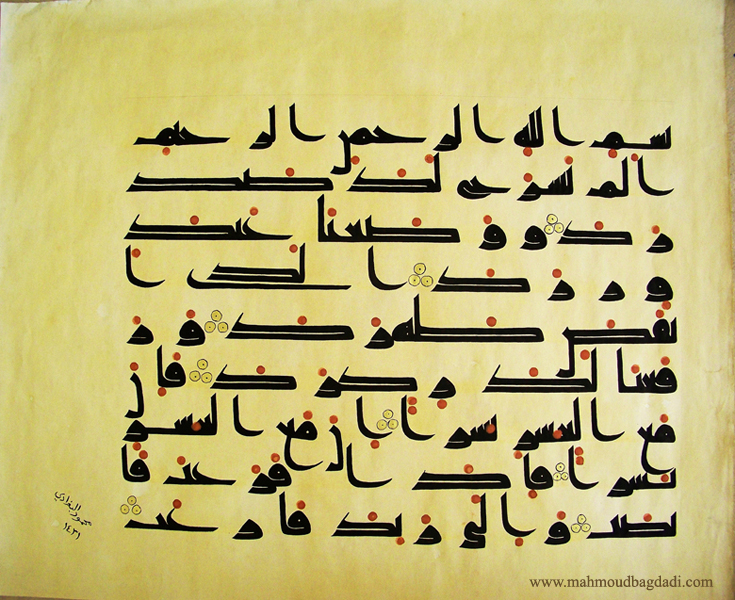 بسم الله الرحمن الرحيم
الم نشرح لك صد
رك ووضعنا عنك
وزرك الذى ا
نقض ظهرك ور
فعنا لك ذكرك فان
مع العسر يسرا ان مع العسر
يسرا فاذا فرغت فا
نصب والى ربك فارغب
محمود البغدادي
١٤٣١
www.mahmoudbagdadi.com